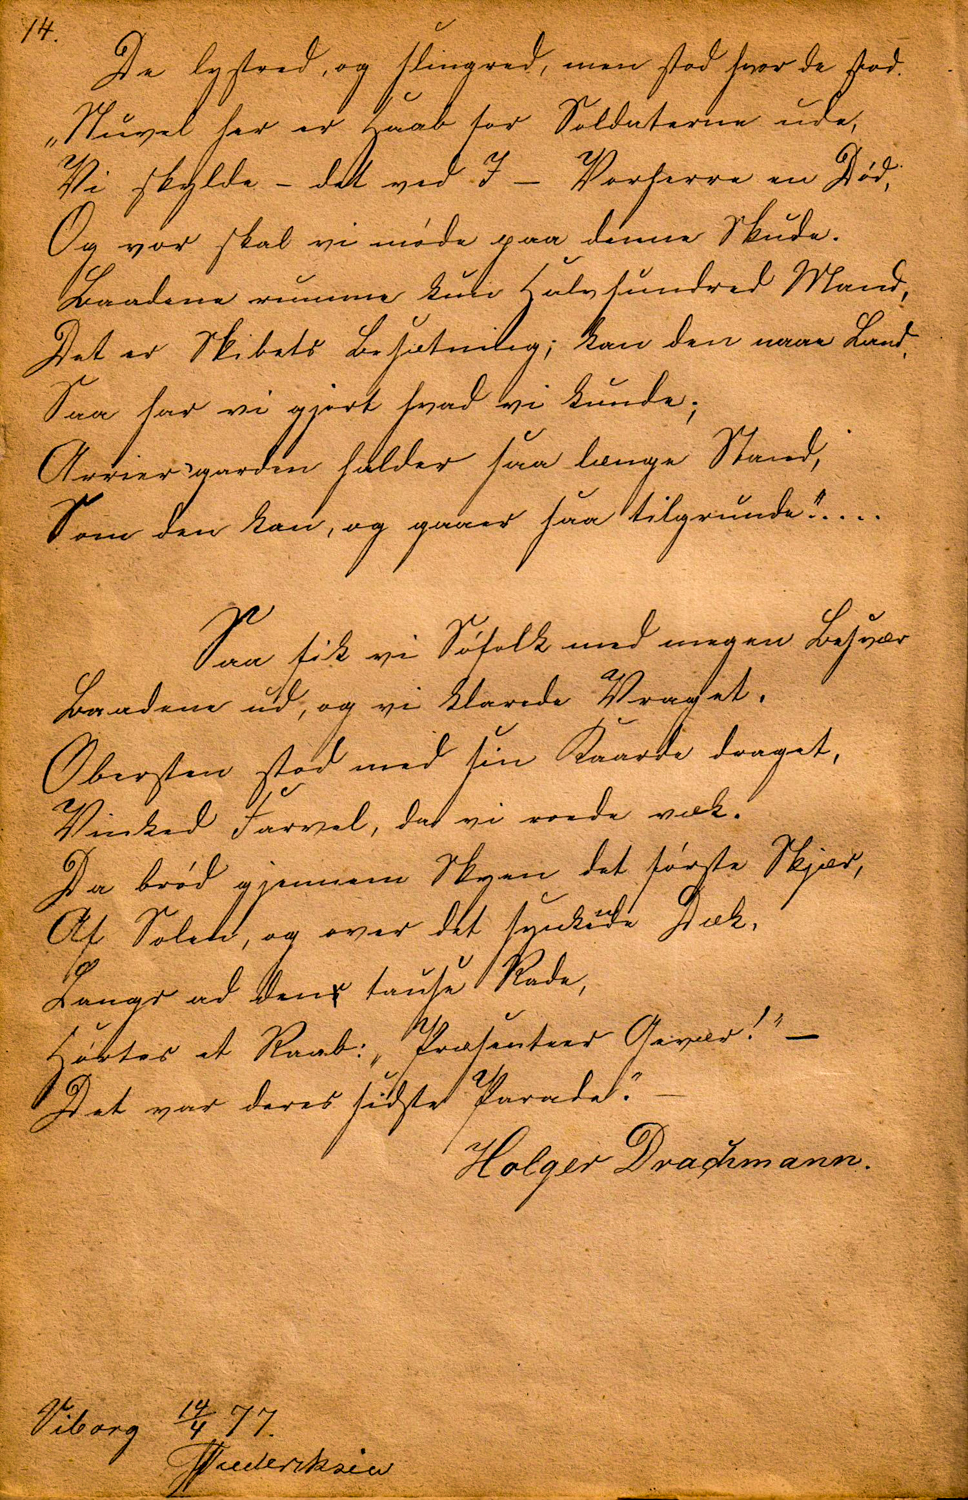 14.
De lystred, og slingred, men stod hvor de stod.
„Nuvel her er Haab for Soldaterne ude,
Vi skylde – det ved I – Vorherre en Død,
Og vor skal vi møde paa denne Skude.
Baadene rumme kun Halvhundred Mand,
Det er Skibets Besætning; kan den naae Land,
Saa har vi gjort hvad vi kunde;
Arriergarden holder saa længe Stand,
Som den kan, og gaaer saa tilgrunde!"....
Saa fik vi Søfolk med megen Besvær
Baadene ud, og vi klarede Vraget.
Obersten stod med sin Kaarde draget,
Vinked Farvel, da vi roede væk.
Da brød gjennem Skyen det første Skjær,
Af Solen, og over det synkende Dæk,
Langs ad den tause Rade,
Hørtes et Raab: „Præsenteer Gevær!" –
Det var deres sidste Parade." –
Holger Drachmann.
Viborg 14/4 77.
Frederiksen